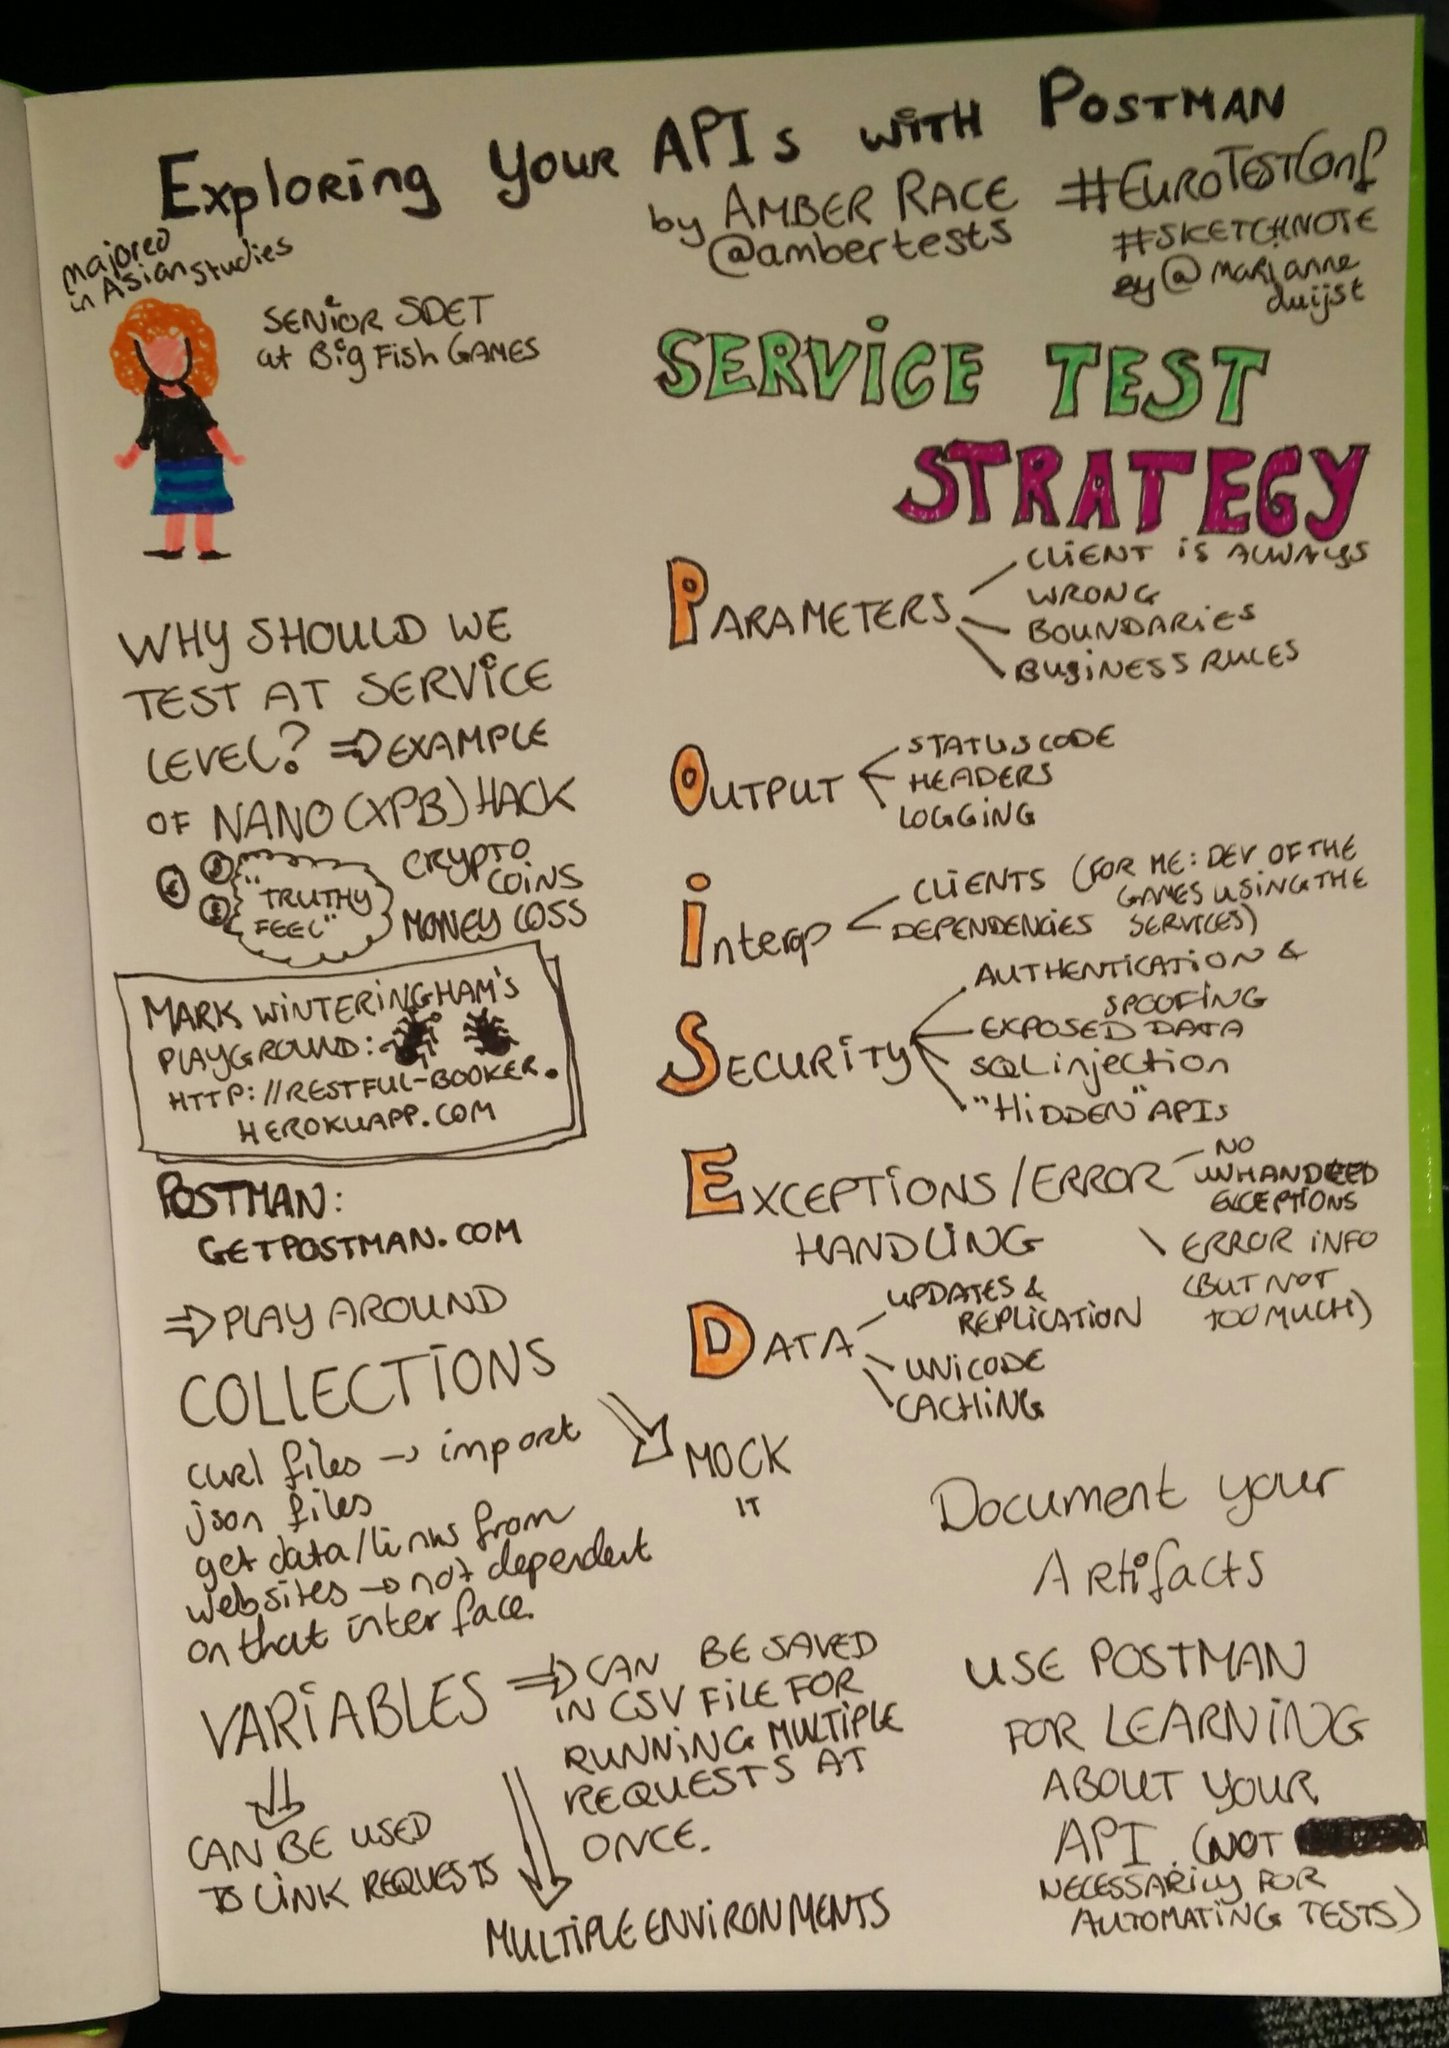 Exploring Your APIs with Postman
by AMBER RACE
@ambertests
#EUROTESTConf
#SKETCHNOTE
by @marianne
duijst
majored
in Asian studies
SENIOR SDET
at Big Fish GAMES
SERVICE TEST
STRATEGY
WHY SHOULD WE
TEST AT SERVICE
LEVEL? ⇒ EXAMPLE
OF NANO (XPB) HACK
"TRUTHY
FEEL"
CRYPTO
COINS
MONEY LOSS
MARK WINTERINGHAM'S
PLAYGROUND:
HTTP://RESTFUL-BOOKER.
HEROKUAPP.COM
POSTMAN:
GETPOSTMAN.COM
⇒ PLAY AROUND
COLLECTIONS
curl files → import
json files
get data/links from
websites → not dependent
on that interface.
MOCK
IT
VARIABLES ⇒ CAN BE SAVED
IN CSV FILE FOR
RUNNING MULTIPLE
REQUESTS AT
ONCE.
CAN BE USED
TO LINK REQUESTS
MULTIPLE ENVIRONMENTS
PARAMETERS
CLIENT IS ALWAYS
WRONG
BOUNDARIES
BUSINESS RULES
OUTPUT
STATUS CODE
HEADERS
LOGGING
Interop
CLIENTS (FOR ME: DEV OF THE
GAMES USING THE
SERVICES)
DEPENDENCIES
SECURITY
AUTHENTICATION &
SPOOFING
EXPOSED DATA
SQL injection
"HIDDEN" APIs
EXCEPTIONS / ERROR
HANDLING
NO
UNHANDLED
EXCEPTIONS
ERROR INFO
(BUT NOT
TOO MUCH)
DATA
UPDATES &
REPLICATION
UNICODE
CACHING
Document your
Artifacts
USE POSTMAN
FOR LEARNING
ABOUT YOUR
API. (NOT
NECESSARILY FOR
AUTOMATING TESTS)